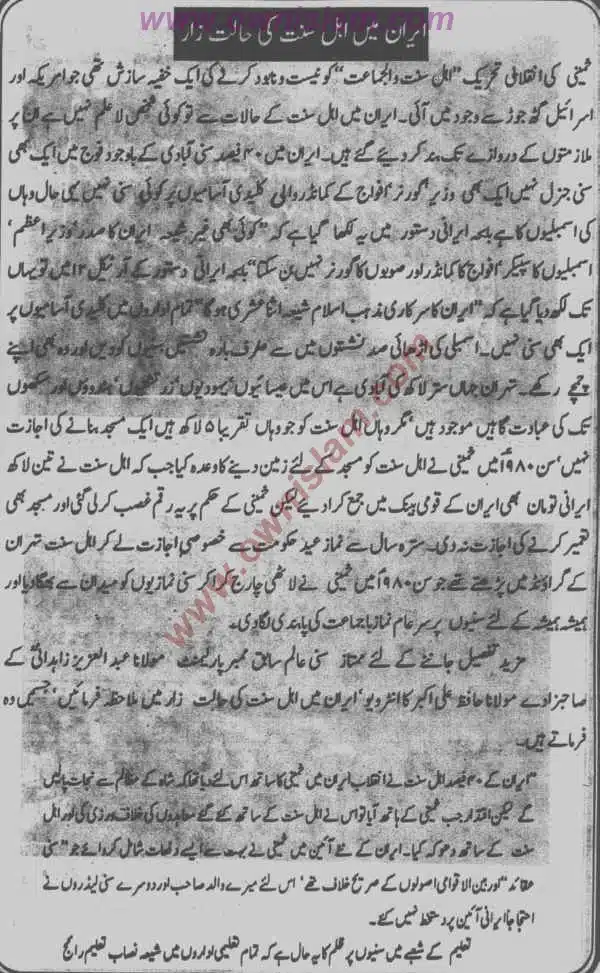 www.ownislam.com
ایران میں اہل سنت کی حالت زار
خمینی کی انقلابی تحریک "اہل سنت والجماعت" کو نیست و نابود کرنے کی ایک خفیہ سازش تھی جو امریکہ اور
اسرائیل گٹھ جوڑ سے وجود میں آئی۔ ایران میں اہل سنت کے حالات سے تو کوئی شخص لا علم نہیں ہے ان پر
ملازمتوں کے دروازے تک بند کر دیئے گئے ہیں۔ ایران میں ۴۰ فیصد سنی آبادی کے باوجود فوج میں ایک بھی
سنی جنرل نہیں ایک بھی وزیر، گورنر، افواج کے کمانڈر والی کلیدی آسامیوں پر کوئی سنی نہیں یہی حال وہاں
کی اسمبلیوں کا ہے بلکہ ایرانی دستور میں یہ لکھا گیا ہے کہ "کوئی بھی غیر شیعہ ایران کا صدر، وزیر اعظم،
اسمبلیوں کا سپیکر، افواج کا کمانڈر اور صوبوں کا گورنر نہیں بن سکتا" بلکہ ایرانی دستور کے آرٹیکل ۱۲ میں تو یہاں
تک لکھ دیا گیا ہے کہ "ایران کا سرکاری مذہب اسلام شیعہ اثنا عشری ہو گا" تمام اداروں میں کلیدی آسامیوں پر
ایک بھی سنی نہیں۔ اسمبلی کی اڑھائی صد نشستوں میں سے صرف بارہ نشستیں سنیوں کو دیں اور وہ بھی اپنے
چمچے رکھے۔ تہران جہاں ستر لاکھ کی آبادی ہے اس میں عیسائیوں، یہودیوں، زرتشتیوں، ہندوؤں اور سکھوں
تک کی عبادت گاہیں موجود ہیں، مگر وہاں اہل سنت کو جو وہاں تقریبا ۵ لاکھ ہیں ایک مسجد بنانے کی اجازت
نہیں، سن ۱۹۸۰ء میں خمینی نے اہل سنت کو مسجد کے لئے زمین دینے کا وعدہ کیا جب کہ اہل سنت نے تین لاکھ
ایرانی تومان بھی ایران کے قومی بینک میں جمع کرا دیئے لیکن خمینی کے حکم پر یہ رقم غصب کر لی گئی اور مسجد بھی
تعمیر کرنے کی اجازت نہ دی۔ سترہ سال سے نماز عید حکومت سے خصوصی اجازت لے کر اہل سنت تہران
کے گراؤنڈ میں پڑھتے تھے جو سن ۱۹۸۰ء میں خمینی نے لاٹھی چارج کرا کر سنی نمازیوں کو میدان سے بھگا دیا اور
ہمیشہ ہمیشہ کے لئے سنیوں پر سر عام نماز با جماعت کی پابندی لگا دی۔
مزید تفصیل جاننے کے لئے ممتاز سنی عالم سابق ممبر پارلیمنٹ مولانا عبد العزیز زاہدانیؒ کے
صاحبزادے مولانا حافظ علی اکبر کا انٹرویو، ایران میں اہل سنت کی حالت زار میں ملاحظہ فرمائیں، جسمیں وہ
فرماتے ہیں۔
"ایران کے ۴۰ فیصد اہل سنت نے انقلاب ایران میں خمینی کا ساتھ اس لئے دیا تھا کہ شاہ کے مظالم سے نجات پالیں
گے لیکن اقتدار جب خمینی کے ہاتھ آیا تو اس نے اہل سنت کے ساتھ کئے گئے معاہدوں کی خلاف ورزی کی اور اہل
سنت کے ساتھ دھوکہ کیا۔ ایران کے نئے آئین میں خمینی نے بہت سے ایسے دفعات شامل کروائے جو "سنی
عقائد" اور بین الاقوامی اصولوں کے صریح خلاف تھے، اس لئے میرے والد صاحب اور دوسرے سنی لیڈروں نے
احتجاجا ایرانی آئین پر دستخط نہیں کئے۔
تعلیم کے شعبے میں سنیوں پر ظلم کا یہ حال ہے کہ تمام تعلیمی اداروں میں شیعہ نصاب تعلیم رائج
www.ownislam.com